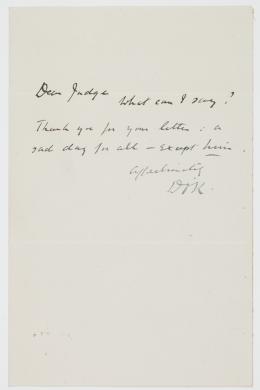 Dear Judge
What can I say?
Thank you for your letter: a
sad day for all – except him.
Affectionately